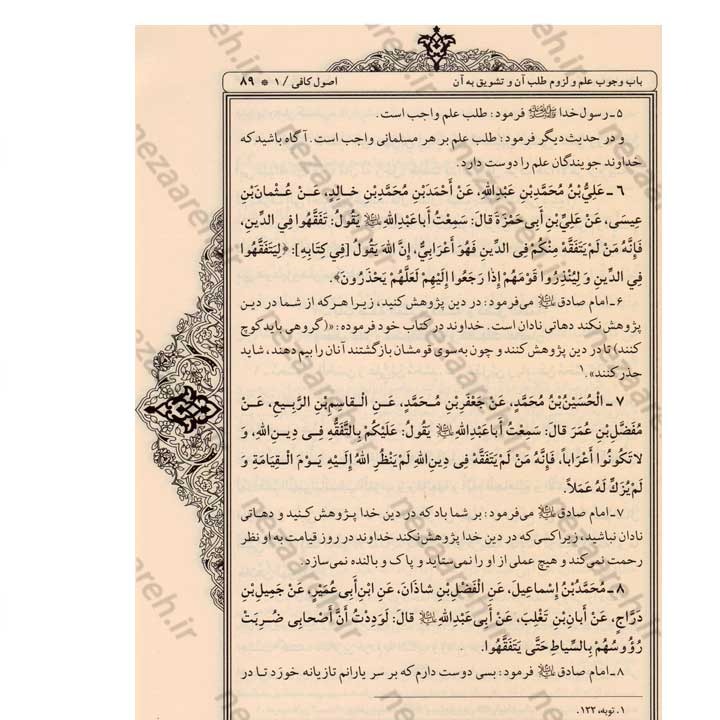 باب وجوب علم و لزوم طلب آن و تشویق به آن
اصول کافی / ۱ * ۸۹
۵ ـ رسول خدا ﷺ فرمود: طلب علم واجب است.
و در حدیث دیگر فرمود: طلب علم بر هر مسلمانی واجب است. آگاه باشید که
خداوند جویندگان علم را دوست دارد.
۶ ـ عَلِيُّ بْنُ مُحَمَّدِبْنِ عَبْدِاللهِ، عَنْ أَحْمَدَبْنِ مُحَمَّدِبْنِ خالِدٍ، عَـنْ عُـثْمانَ‌بْنِ
عِیسَی، عَنْ عَلِيِّ‌بْنِ أَبِی‌حَمْزَةَ قالَ: سَمِعْتُ أَباعَبْدِاللهِ ﷷ یَقُولُ: تَفَقَّهُوا فِي الدِّینِ،
فَإِنَّهُ مَنْ لَمْ یَتَفَقَّهْ مِنْکُمْ فِی الدِّینِ فَهُوَ أَعْرَابِيٌّ، إِنَّ اللهَ یَقُولُ [فِي کِتَابِهِ]: ﴿لِیَتَفَقَّهُوا
فِي الدِّینِ وَ لِیُنْذِرُوا قَوْمَهُمْ إِذَا رَجَعُوا إِلَیْهِمْ لَعَلَّهُمْ یَحْذَرُونَ﴾.
۶ ـ امام صادق می‌فرمود: در دین پژوهش کنید، زیـرا هـرکه از شما در دیـن
پژوهش نکند دهاتی نادان است. خداوند در کتاب خود فرموده: «(گروهی باید کوچ
کنند) تا در دین پژوهش کنند و چون به‌سوی قومشان بازگشتند آنان را بیم دهند، شاید
حذر کنند».۱
۷ ـ الْحُسَیْنُ‌بْنُ مُحَمَّدٍ، عَنْ جَعْفَرِبْنِ مُـحَمَّدٍ، عَـنِ الْـقَاسِمِ‌بْنِ الرَّبِـیعِ، عَـنْ
مُفَضَّلِ‌بْنِ عُمَرَ قالَ: سَمِعْتُ أَباعَبْدِاللهِ یَقُولُ: عَلَیْکُمْ بِالتَّفَقُّهِ فِـی دِیـنِ‌اللهِ، وَ
لاتَکُونُوا أَعْرَاباً، فَإِنَّهُ مَنْ لَمْ یَتَفَقَّهْ فِی دِینِ‌اللهِ لَمْ یَنْظُرِ اللهُ إِلَـیْهِ یَـوْمَ الْـقِیَامَةِ وَ
لَمْ یُزَکِّ لَهُ عَمَلاً.
۷ ـ امام صادق می‌فرمود: بر شما باد که در دین خدا پـژوهش کنید و دهـاتی
نادان نباشید، زیرا کسی که در دین خدا پژوهش نکند خداوند در روز قیامت به او نظر
رحمت نمی‌کند و هیچ عملی از او را نمی‌ستاید و پاک و بالنده نمی‌سازد.
۸ ـ مُحَمَّدُبْنُ إِسْمَاعِیلَ، عَنِ الْفَضْلِ‌بْنِ شاذَانَ، عَنِ ابْنِ‌أَبِی عُمَیْرٍ، عَنْ جَمِیلِ‌بْنِ
دَرَّاجٍ، عَنْ أَبانِ‌بْنِ تَغْلِبَ، عَنْ أَبِی‌عَبْدِاللهِ قالَ: لَوَدِدْتُ أَنَّ أَصْحَابِی ضُـرِبَتْ
رُؤُوسُهُمْ بِالسِّیَاطِ حَتَّی یَتَفَقَّهُوا.
۸ ـ امام صادق فرمود: بسی دوست دارم که بر سر یارانم تازیانه خورَد تـا در
۱. توبه، ۱۲۲.
nezaareh.ir